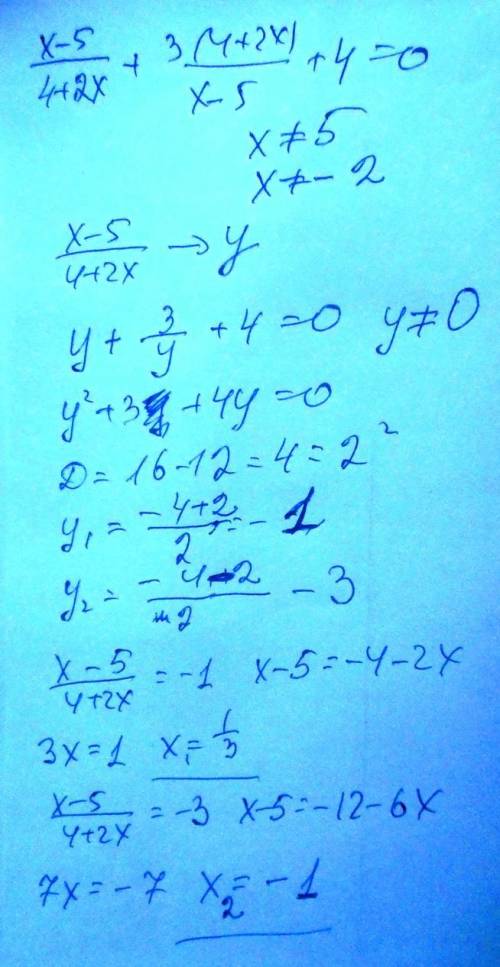 (x-5)/(4+2x) + 3(4+2x)/(x-5) + 4 = 0
x ≠ 5
x ≠ -2
(x-5)/(4+2x) → y
y + 3/y + 4 = 0 y ≠ 0
y² + 3 + 4y = 0
D = 16-12 = 4 = 2²
y₁ = (-4+2)/2 = -1
y₂ = (-4-2)/2 - 3
(x-5)/(4+2x) = -1 x-5 = -4-2x
3x = 1 x₁ = 1/3
(x-5)/(4+2x) = -3 x-5 = -12-6x
7x = -7 x₂ = -1